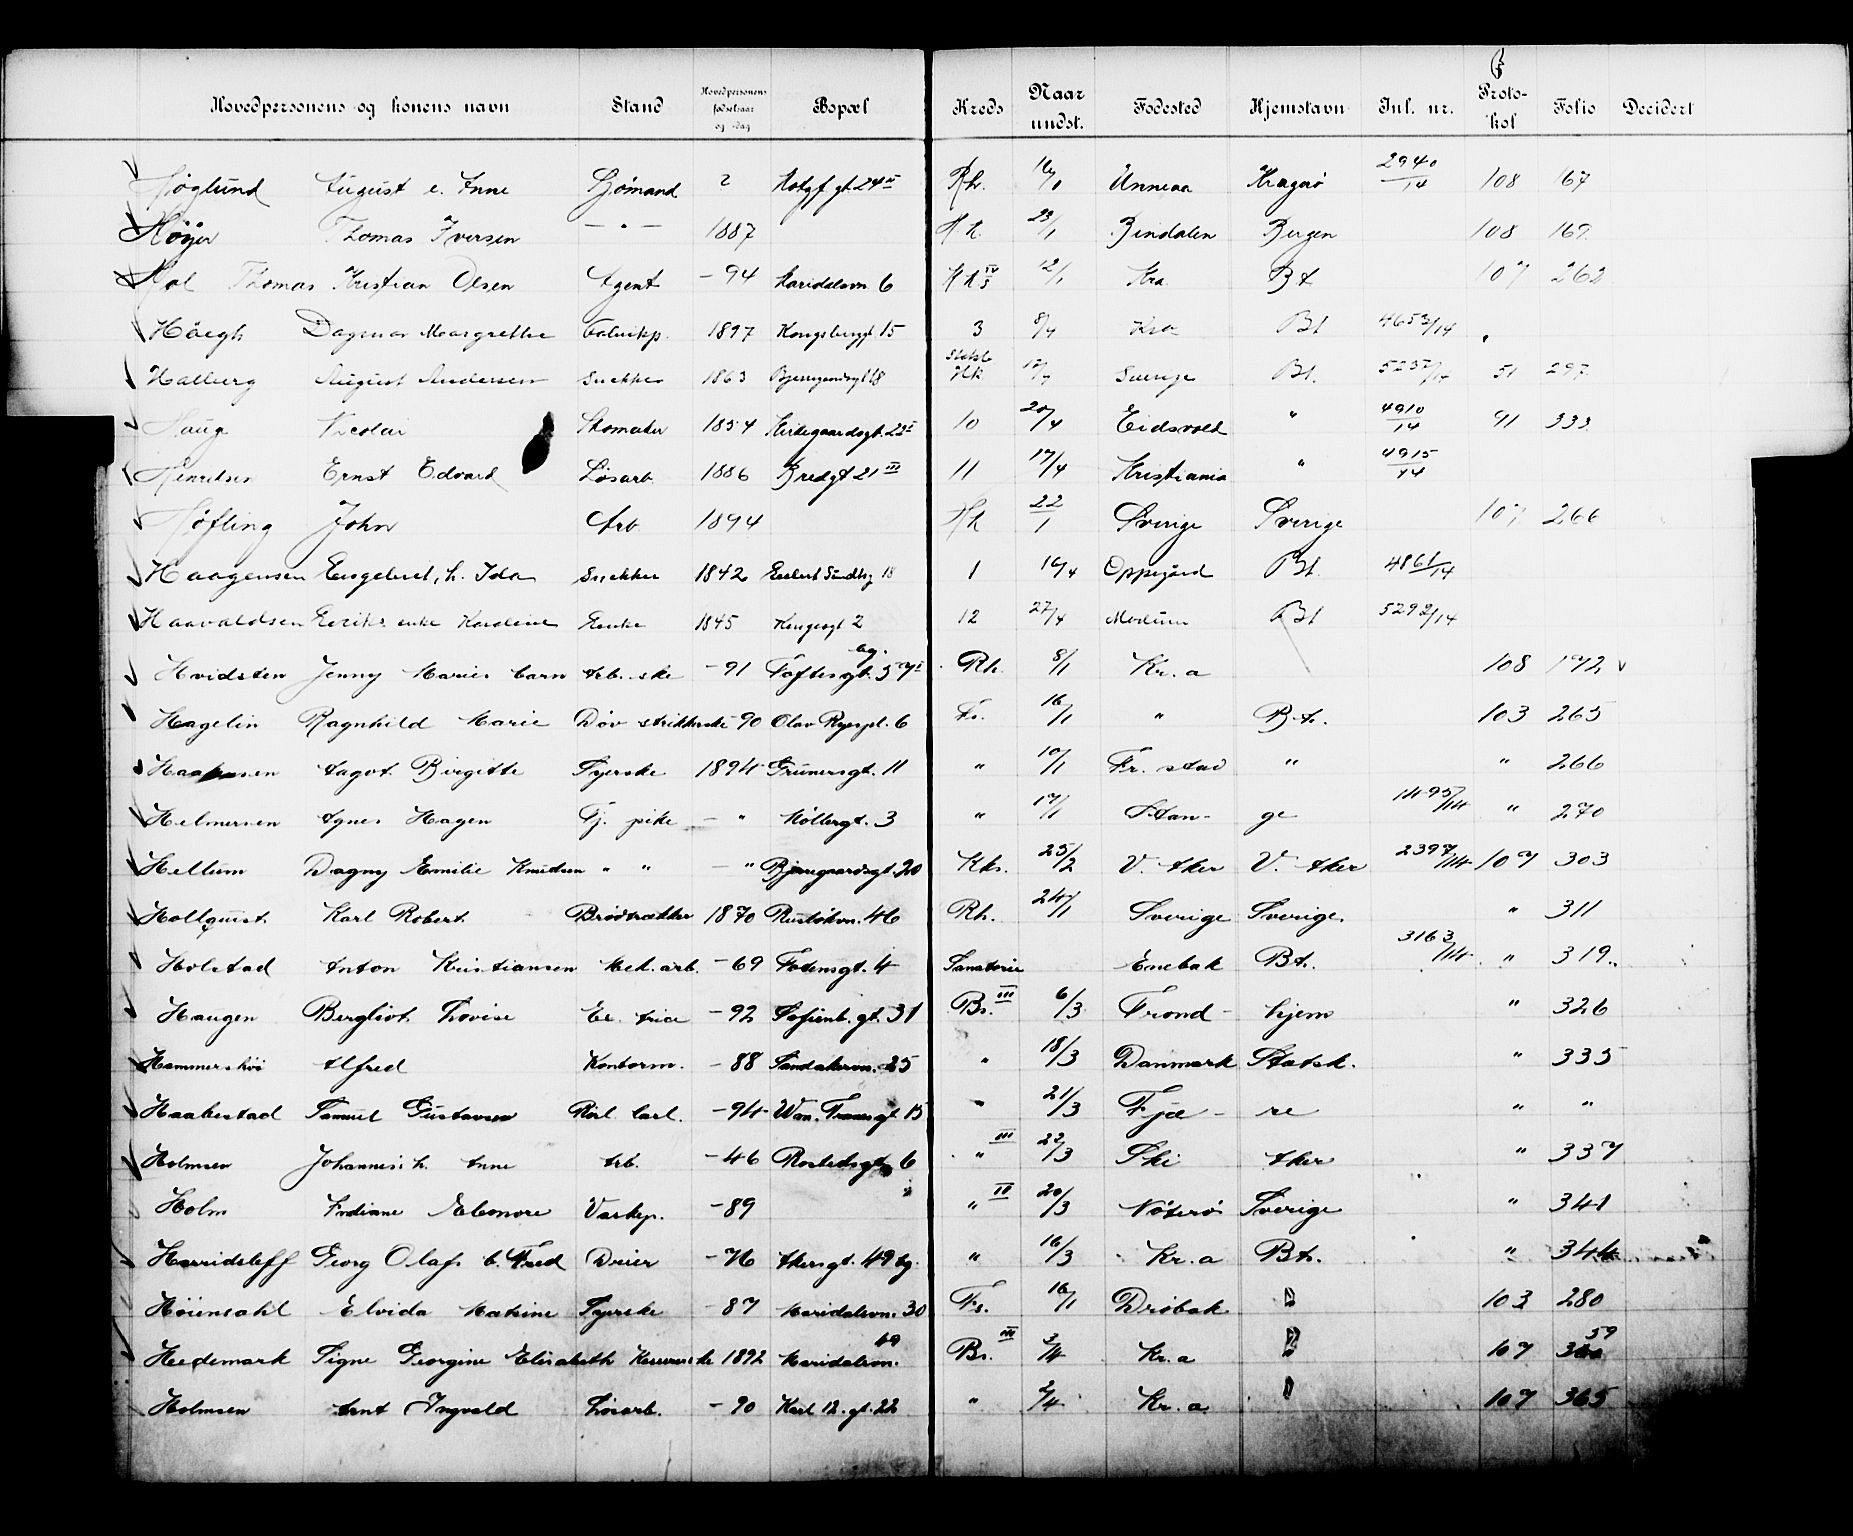 Hovedpersonens og konens navn Stand Hovedpersonens fødselsaar og -dag Bopæl Kreds Naar undst. Fødested Hjemstavn Inl. nr. Proto-kol Folio Decidert
Höglund August e. Anne Sjømand ? gt. 24 II Rh. 16/1 Kragerø 2940/14 108 167
Höyer Thomas Iversen — " — 1887 23/1 Bindalen Bergen 108 169
Hol Thomas Kristian Olsen Agent - 94 Maridalsvn. 6 12/1 Kra. Bt 107 262
Höegh Dagmar Margrethe 1897 Kongsbergt 15 3 8/4 Kra Bt 4653/14 "
Halberg August Andersen Snekker 1863 Hk. Sverige Bt. 5232/14 51 297
Haug Nicolai Skomaker 1854 Kirkegaardsgt. 22 I 10 20/4 Eidsvold " 4910/14 91 333
Henriksen Ernst Edvard Løsarb. 1886 Bredgt 21 III 11 17/4 Kristiania " 4915/14
Höfling John Arb. 1894 22/1 Sverige Sverige 107 266
Haagensen Engebret, h. Ida Snekker 1842 Eilert Sundtsg 18 1 Oppegård Bt. 4861/14
Haavaldsen Eriks. enke Karoline Enke 1845 Kongesgt 2 12 27/4 Modum Bt 5292/14
Hvidsten Jenny Marie barn Arb. ske - 91 Toftesgt. 57 I bg. Rh. 8/1 Kr.a 108 192 v
Hagelin Ragnhild Marie Døv strikkerske 90 Olav Ryespl. 6 Fs. 16/1 " Bt. 103 265
Haakensen Aagot Birgitte Syerske 1894 Grünersgt. 11 " 10/1 Fr. stad " " 266
Helmersen Agnes Hagen Tj. pike - " Møllergt. 3 " 17/1 Stan- ge 1495/14 " 270
Hellum Dagny Emilie Knudsen " " - " Bjerregaardsgt. 20 Kks. 25/2 V. Aker V. Aker 2397/14 107 303
Hollquist Karl Robert Brødtrækker 1870 Ruseløkvn. 46 Rh. 24/1 Sverige Sverige. " 311
Holstad Anton Kristiansen Mek. arb. - 69 Totensgt. 4 Sanatorie Enebak Bt. 3163/14 " 319
Haugen Bergliot Lovise El. trice - 92 Sofienb. gt. 31 Br. III 6/3 Trond- hjem " 326
Hammershöi Alfred Kontorm. - 88 Sandakervn. 25 " 18/3 Danmark Statsk. " 335
Haabestad Samuel Gustavsen - 94 Wm. Thranesgt. 15 " 21/3 Fjæ- re " "
Holmsen Johannes: h. Anne Arb. - 46 Rostedsgt. 6 " III 22/3 Ski Aker " 337
Holm Indiane Eleonore Vaskep. - 89 " II 20/3 Nøterø Sverige " 341
Harridsleff Georg Olaf b. Fred Dreier - 76 Akersgt. 49 bg. " 16/3 Kr.a Bt. " 344
Höiensahl Elvida Maxine Syerske - 87 Maridalsvn. 30 Fs. 16/1 Drøbak " 103 280
Hedemark Signe Georgine Elisabeth 1892 Maridalsvn. 69 Br. III 3/4 Kr.a " 107 59
Holmsen Arnt Ingvald Løsarb. - 90 Karl 12. gt. 22 " 2/4 Kr.a. " 107 365